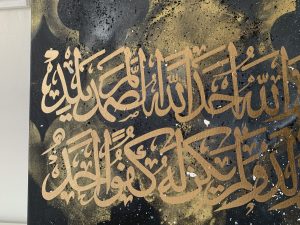 الله أحد الله الصمد لم يلد
ولم يكن له كفوا أحد